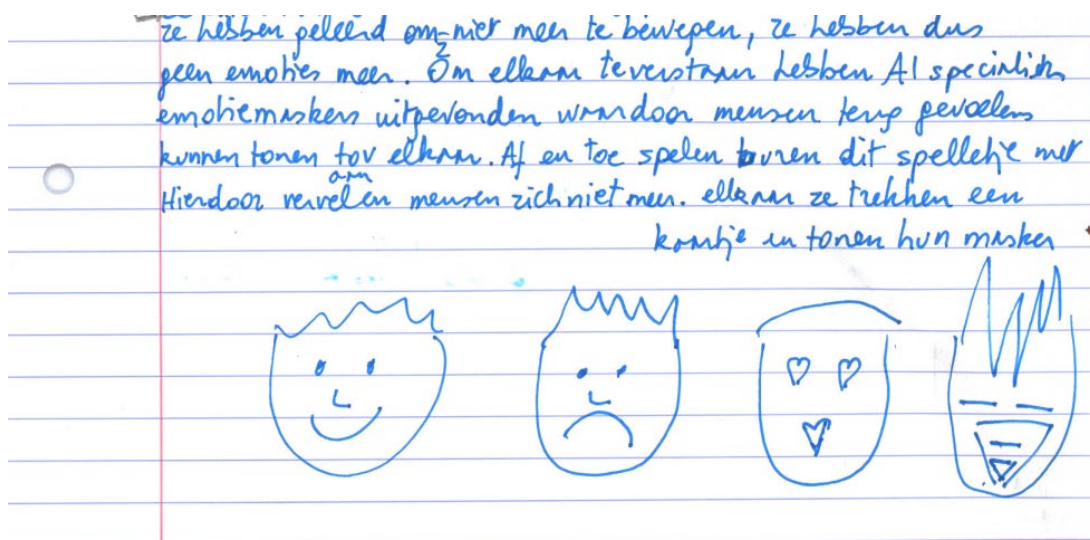 ze hebben geleerd om niet meer te bewegen, ze hebben dus
geen emoties meer. Om elkaar te verstaan hebben AI specialisten
emotiemaskers uitgevonden waardoor mensen terug gevoelens
kunnen tonen tov elkaar. Af en toe spelen buren dit spelletje met
aan
Hierdoor vervelen mensen zich niet meer. elkaar ze trekken een
kaartje en tonen hun masker